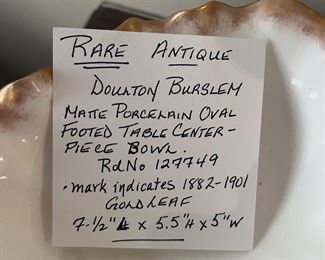 RARE ANTIQUE
DOULTON BURSLEM
MATTE PORCELAIN OVAL
FOOTED TABLE CENTER-
PIECE BOWL.
RdNo 127749
• mark indicates 1882-1901
GOLD LEAF
7-1/2" L x 5.5"H x 5"W